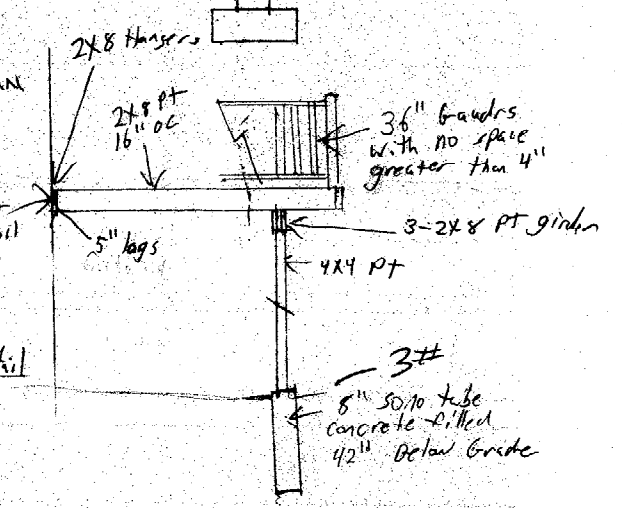 2X8 Hangers
2X8 pt
16" OC
36" Gaudrs
with no space
greater than 4"
5" lags
3-2X8 PT girder
4X4 Pt
3#
8" sono tube
concrete filled
42" Below Grade